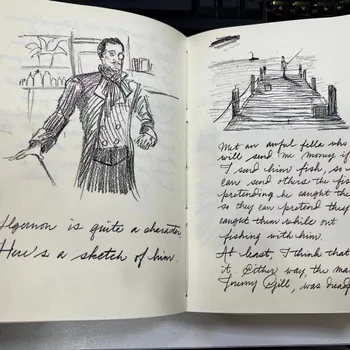 Algonon is quite a character!
Here's a sketch of him.
Met an awful fella who
will send me money if
I send him fish, so
can send others the fis
pretending he caught th
so they can pretend they
caught them while out
fishing with him.
At least, I think that
it. Either way, the ma
Jeremy Gill, was dread